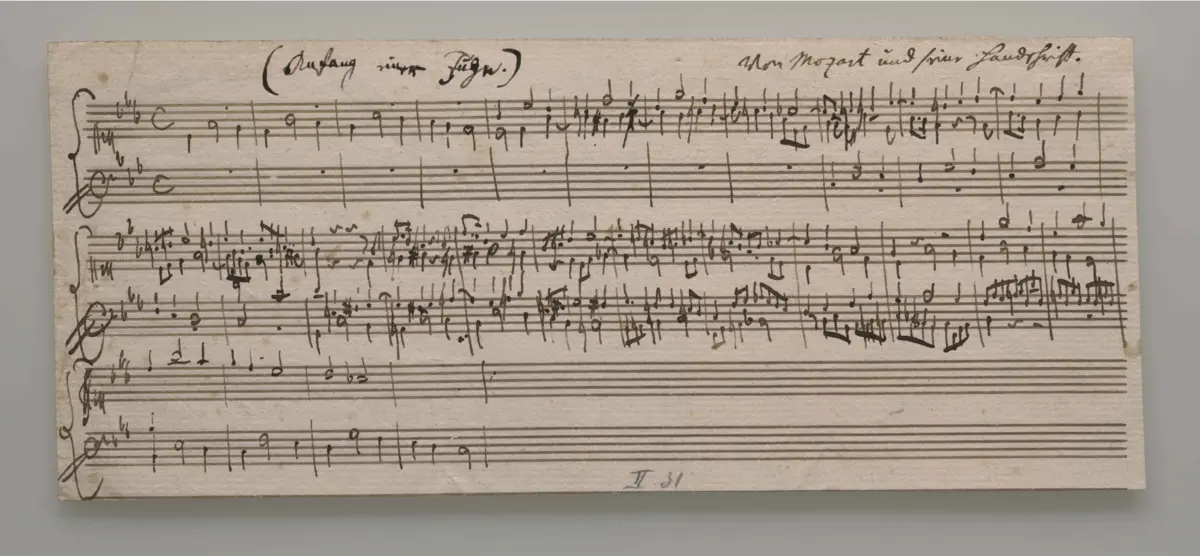 (Anfang einer Fuge.)
Von Mozart und seine Handschrift.
II 31